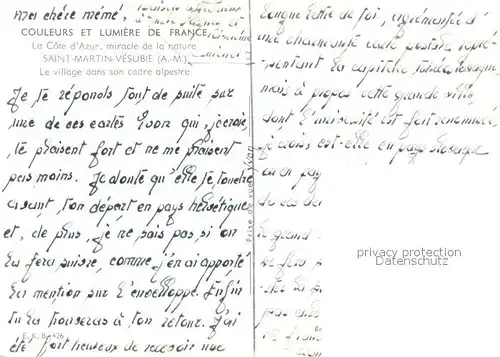 Ma chère mémé,
COULEURS ET LUMIÈRE DE FRANCE
La Côte d'Azur, miracle de la nature
SAINT-MARTIN-VÉSUBIE (A.-M.)
Le village dans son cadre alpestre
Je te réponds tout de suite sur
une de ces cartes Yvon qui, je crois,
te plaisent fort et ne me plaisent
pas moins. Je doute qu'elle te touche
avant ton départ en pays helvétique
et, de plus, je ne sais pas si on
la fera suivre, comme j'en ai apporté
la mention sur l'enveloppe. Enfin
tu la trouveras à ton retour. J'ai
E. K. B. 426
été fort heureux de recevoir une
Prise de vue Yvon
longue lettre de toi, agrémentée d'
une charmante carte postale, repré-
sentant la capitale
mais à propos cette grande ville
dont l'université est fort renommée,
je crois, est-elle en pays
ou en pay
de ces de
le grand
privacy protection
Datenschutz